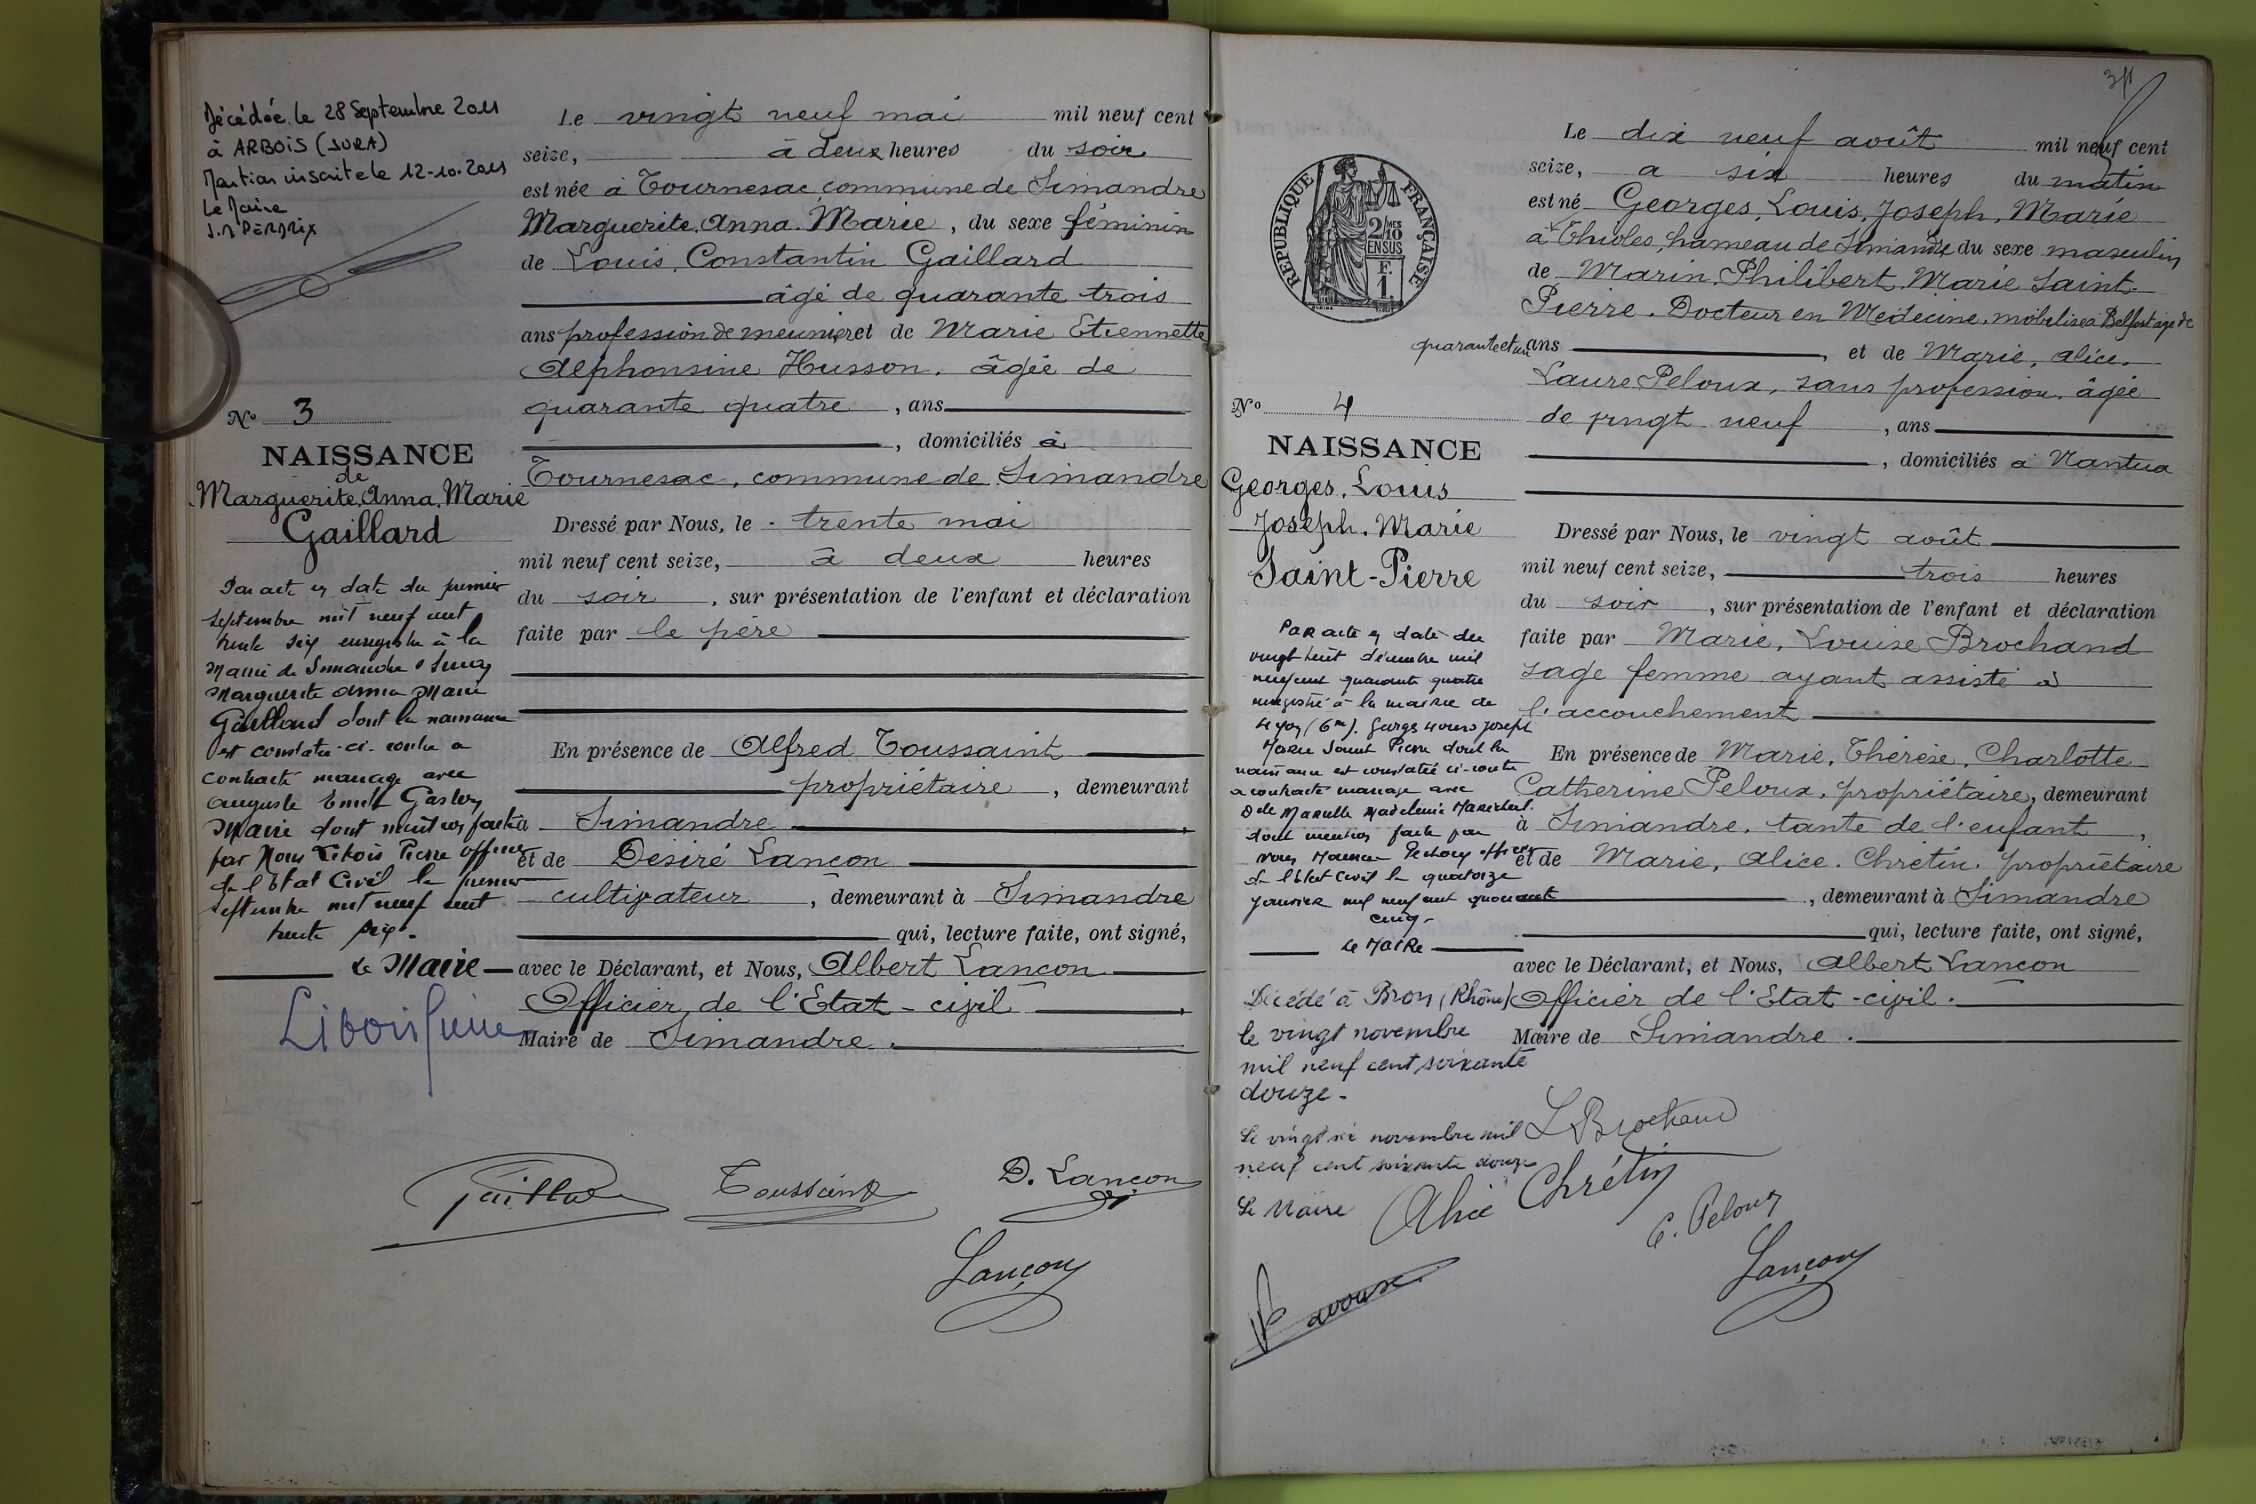 Décédée le 28 Septembre 2011
à ARBOIS (JURA)
Mention inscrite le 12-10-2011
Le Maire
N° 3
NAISSANCE
de
Marguerite, Anna, Marie
Gaillard
Par acte en date du premier
septembre mil neuf cent
trente six enregistré à la
Mairie de Simandre s/ Suran
Marguerite Anna Marie
Gaillard dont la naissance
est constatée ci-contre a
contracté mariage avec
Auguste Emile Gaston
Marie dont mention faite
par Nous Libois Pierre officier
de l'Etat Civil le premier
septembre mil neuf cent
trente six.
Le Maire
Libois Pierre
Le vingt neuf mai mil neuf cent
seize, à deux heures du soir
est née à Tournesac, commune de Simandre
Marguerite, Anna, Marie, du sexe féminin
de Louis, Constantin Gaillard
âgé de quarante trois
ans profession de meunier et de Marie Etiennette
Alphonsine Husson, âgée de
quarante quatre, ans
, domiciliés à
Tournesac, commune de Simandre
Dressé par Nous, le trente mai
mil neuf cent seize, à deux heures
du soir, sur présentation de l'enfant et déclaration
faite par le père
En présence de Alfred Toussaint
propriétaire, demeurant
à Simandre
et de Désiré Lançon
cultivateur, demeurant à Simandre
qui, lecture faite, ont signé,
avec le Déclarant, et Nous, Albert Lançon
Officier de l'Etat-civil
Maire de Simandre.
Gaillard Toussaint D. Lançon
Lançon
RÉPUBLIQUE FRANÇAISE
2/10 MES
EN SUS
F.
1.
N° 4
NAISSANCE
Georges, Louis
Joseph, Marie
Saint-Pierre
Par acte en date du
vingt huit décembre mil
neuf cent quarante quatre
enregistré à la mairie de
Lyon (6me). Georges Louis Joseph
Marie Saint Pierre dont la
naissance est constatée ci-contre
a contracté mariage avec
Delle Marcelle Madeleine Maréchal.
dont mention faite par
nous Maurice officier
de l'Etat Civil le quatorze
janvier mil neuf cent quarante
cinq.
Le Maire
Décédé à Bron (Rhône)
le vingt novembre
mil neuf cent soixante
douze.
Le vingt six novembre mil
neuf cent soixante douze
Le Maire
Le dix neuf août mil neuf cent
seize, à six heures du matin
est né Georges, Louis, Joseph, Marie
à Thioles, hameau de Simandre du sexe masculin
de Marin, Philibert, Marie Saint-
Pierre, Docteur en Médecine, mobilisé à Belfort âgé de
quarante et un ans, et de Marie, Alice,
Laure Peloux, sans profession, âgée
de vingt neuf, ans
, domiciliés à Nantua
Dressé par Nous, le vingt août
mil neuf cent seize, trois heures
du soir, sur présentation de l'enfant et déclaration
faite par Marie, Louise Brochand
sage femme ayant assisté à
l'accouchement
En présence de Marie, Thérèse, Charlotte
Catherine Peloux, propriétaire, demeurant
à Simandre, tante de l'enfant,
et de Marie, Alice, Chrétin, propriétaire
, demeurant à Simandre
qui, lecture faite, ont signé,
avec le Déclarant, et Nous, Albert Lançon
Officier de l'Etat-civil.
Maire de Simandre.
L Brochand
Alice Chrétin
C. Peloux
Lançon